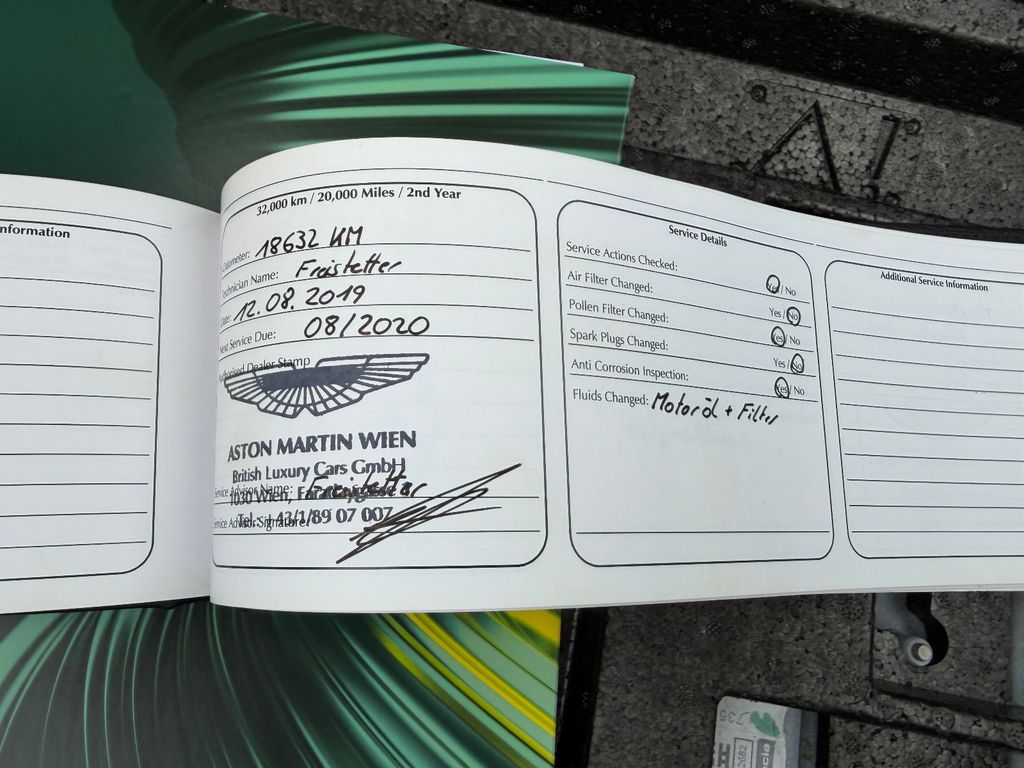 nformation
32,000 km / 20,000 Miles / 2nd Year
Odometer: 18632 KM
Technician Name: Freistetter
Date: 12.08.2019
Next Service Due: 08/2020
Authorised Dealer Stamp
ASTON MARTIN WIEN
British Luxury Cars GmbH
Service Advisor Name: Freistetter
1030 Wien,
Service Advisor Signature:
Tel.: +43/1/89 07 007
Service Details
Service Actions Checked: Yes / No
Air Filter Changed: Yes / No
Pollen Filter Changed: Yes / No
Spark Plugs Changed: Yes / No
Anti Corrosion Inspection: Yes / No
Fluids Changed: Motoröl + Filter
Additional Service Information
A!
735
2682